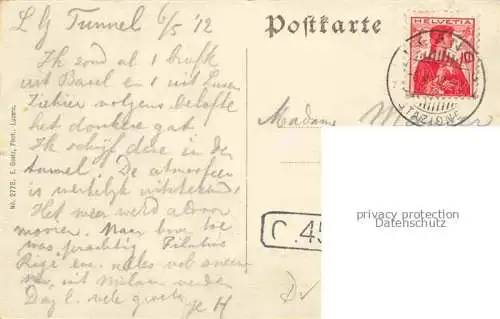 L G Tunnel 6/5 '12
Postkarte
Ik zond al 1 brief
uit Basel en 1 uit Luzern
Hier volgens belofte
het donkere gat.
Ik schrijf deze in den
tunnel. De atmosfeer
is werkelijk uitstekend!
Het weer werd al
mooier. Naar
was prachtig Pilatus
Rigi enz. alles vol sneeuw
uit Milaan
Dag l. vele groeten
je H
Madame M
HELVETIA
10
STAZIONE
C. 45
No. 2778. E. Goetz, Phot., Luzern.
privacy protection
Datenschutz